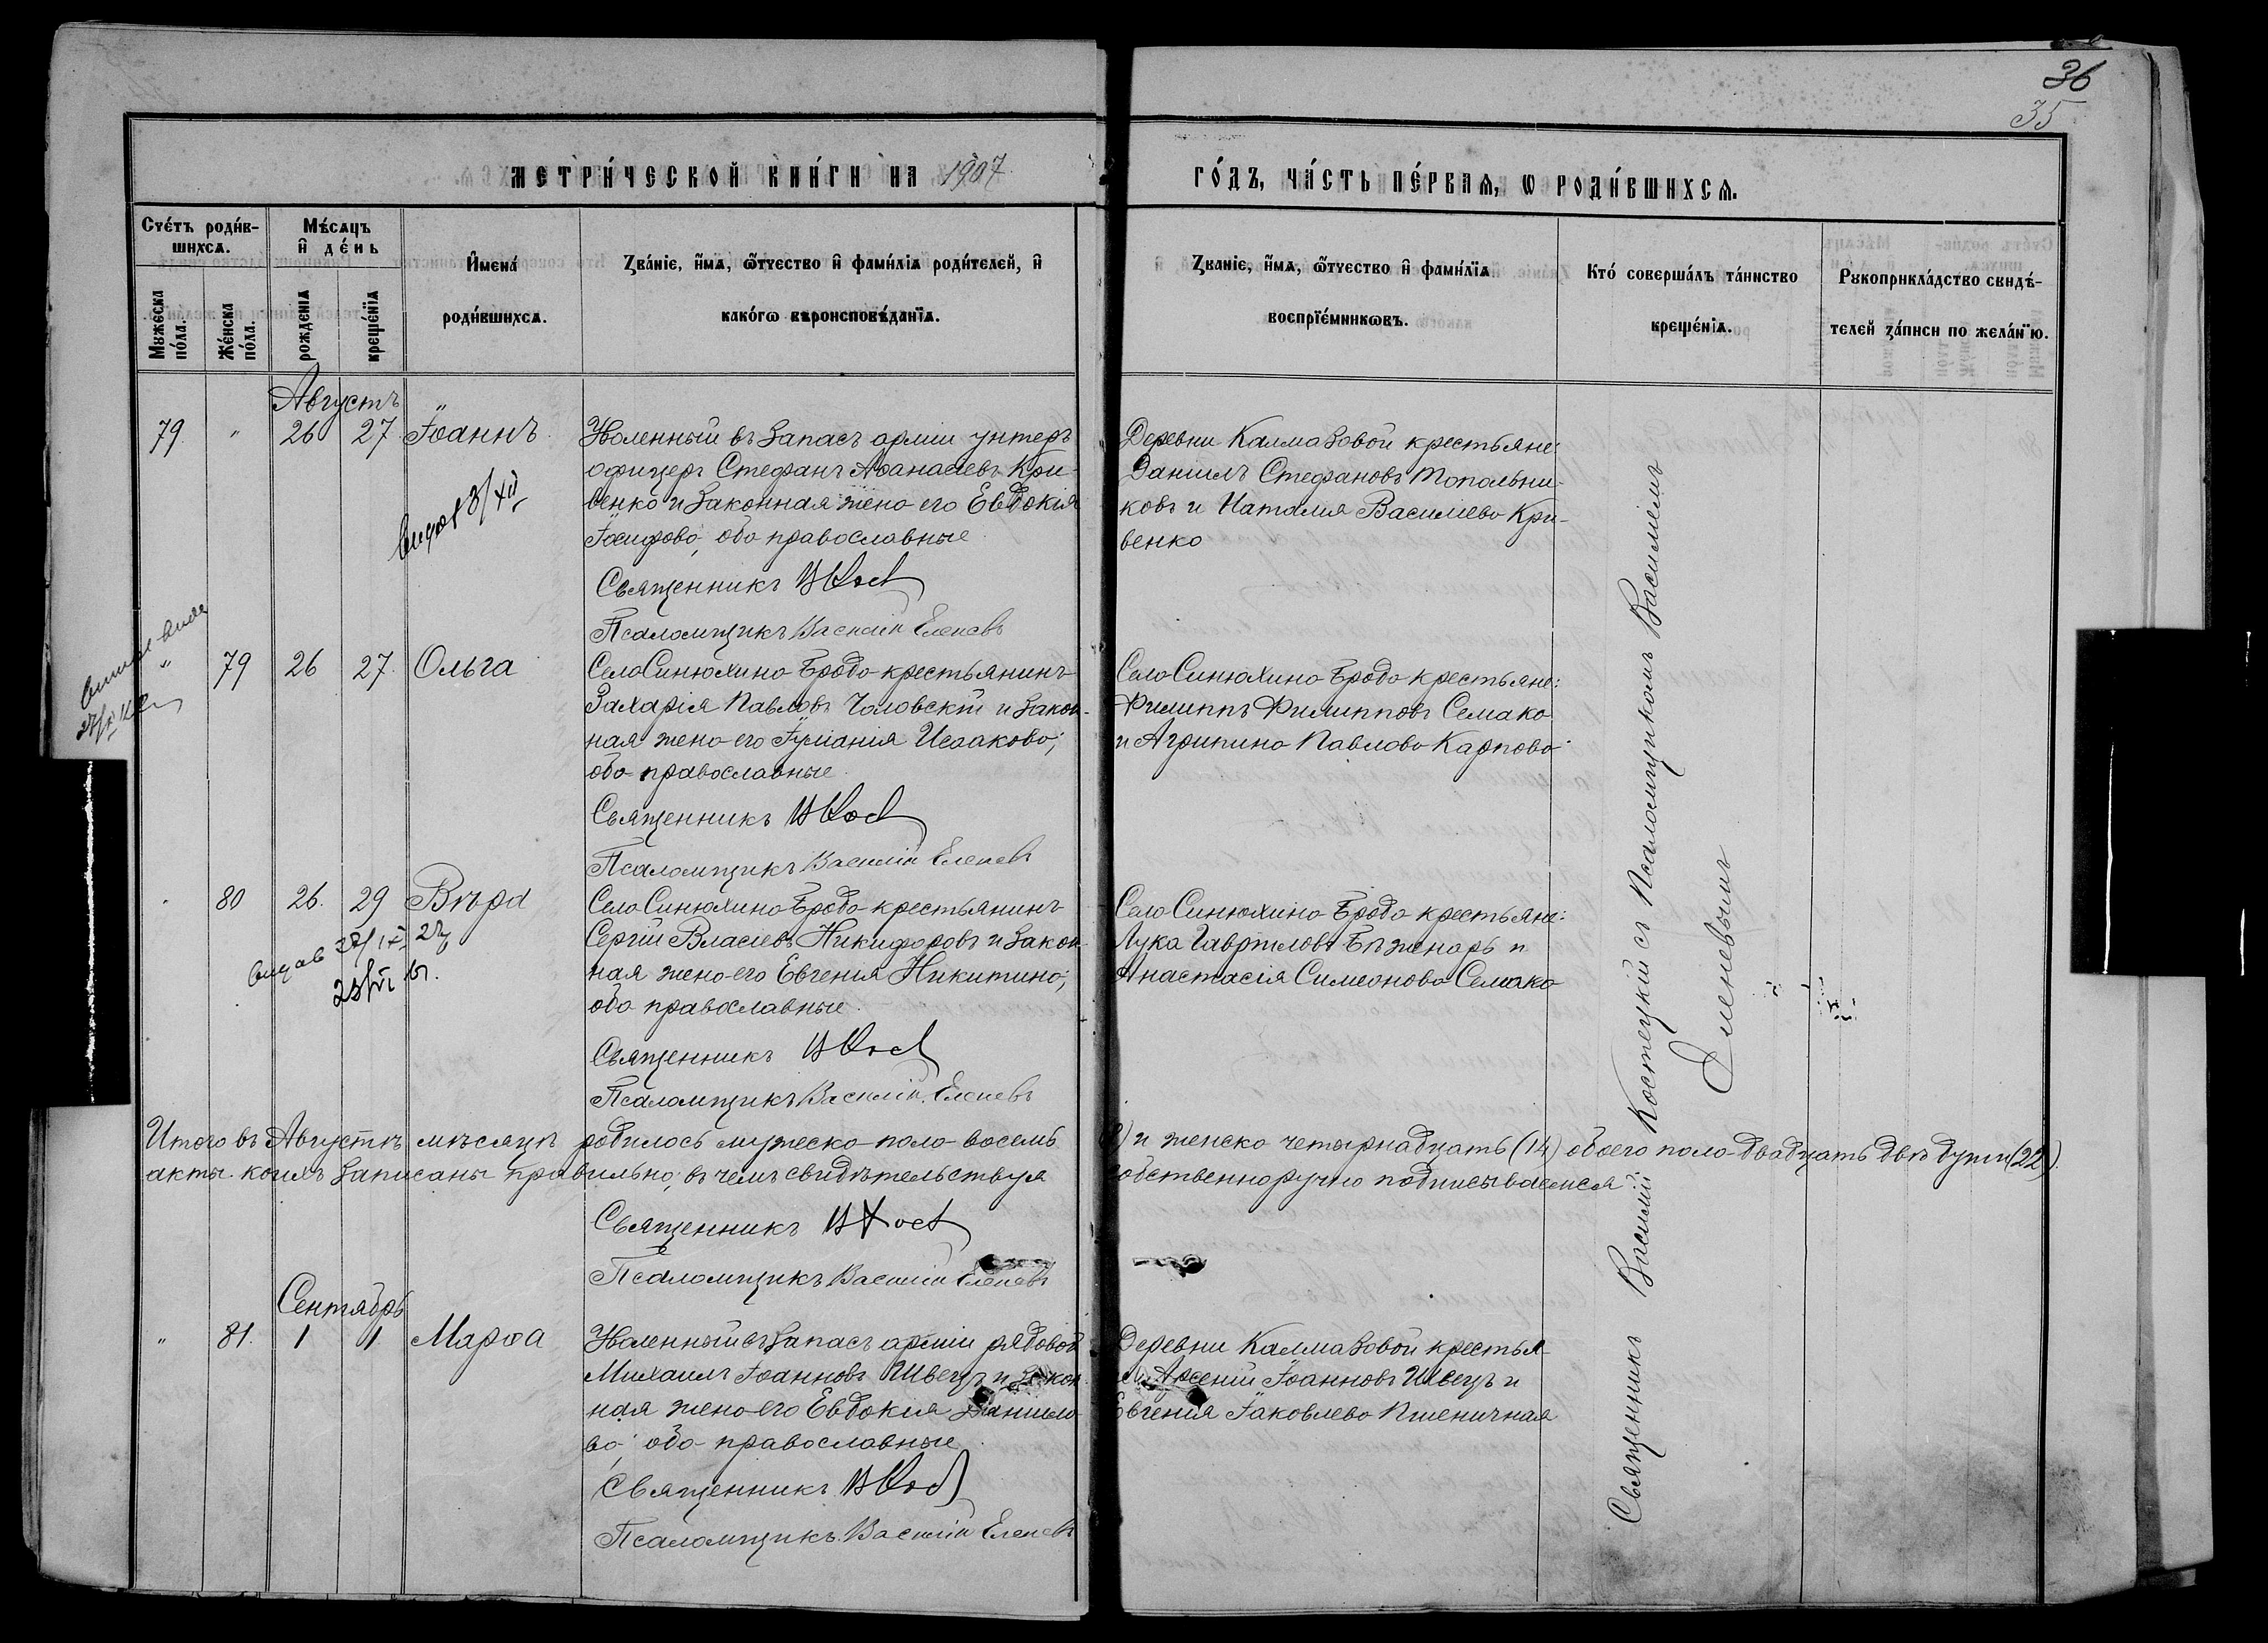 36
35
метри́ческой кни́ги на 1907
го́дъ, ча́сть пе́рваѧ, ѡ роди́вшихсѧ.
Сче́тъ роди́в-
шихсѧ.
Мꙋжеска по́ла.
Же́нска по́ла.
Мѣ́сяцъ
и҆ де́нь
рожденїѧ
креще́нїѧ
И҆мена́
роди́вшихсѧ.
Зва́нїе, и҆́мѧ, ѻ҆́тчество и҆ фами́лїѧ роди́телей, и҆
како́гѡ вѣроисповѣ́данїѧ.
Зва́нїе, и҆́мѧ, ѻ҆́тчество и҆ фами́лїѧ
воспрїе́мникѡвъ.
Кто́ соверша́лъ та́инство
креще́нїѧ.
Рꙋкоприкла́дство свидѣ́-
телей за́писи по жела́нїю.
Августъ
79. " 26 27 Іоаннъ
Уволенный въ запасъ арміи унтеръ
офицеръ Стефанъ Аѳанасіевъ Кри-
венко и законная жена его Евдокія
Іосифова, оба православные
Священникъ В Кост
Псаломщикъ Василій Еленевъ
Деревни Калмазовой крестьяне:
Даніилъ Стефановъ Топольни-
ковъ и Наталия Василіева Кри-
венко
" 79 26 27. Ольга
Села Синюхина Брода крестьянинъ
Захарія Павловъ Чоловскій и закон-
ная жена его Іуліанія Исаакова;
оба православные
Священникъ В Кост
Псаломщикъ Василій Еленевъ
Села Синюхина Брода крестьяне:
Филиппъ Филипповъ Семако
и Агрипина Павлова Карпова
80 26. 29 Вѣра
Села Синюхина Брода крестьянинъ
Сергій Власіевъ Никифоровъ и закон-
ная жена его Евгенія Никитина;
оба православные.
Священникъ В Кост
Псаломщикъ Василій Еленевъ
Села Синюхина Брода крестьяне:
Лука Гавріиловъ Бѣженарь и
Анастасія Симеонова Семако
Итого въ Августѣ мѣсяцѣ родилось мужеска пола восемь (8) и женска четырнадцать (14) обоего пола двадцать двѣ души (22).
акты коихъ записаны правильно, въ чемъ свидѣтельствуя собственноручно подписываемся
Священникъ В Кост
Псаломщикъ Василій Еленевъ
Сентябрь
" 81. 1 1 Марѳа
Уволенный въ запасъ арміи рядовой
Михаилъ Іоанновъ Швецъ и закон-
ная жена его Евдокія Даніило-
ва; оба православные
Священникъ В Кост
Псаломщикъ Василій Еленевъ
Деревни Калмазовой крестья-
Арсеній Іоанновъ Швецъ и
Евгенія Іаковлева Пшеничная
Священникъ Василій Костецкій съ Псаломщикомъ Василіемъ
Еленевымъ